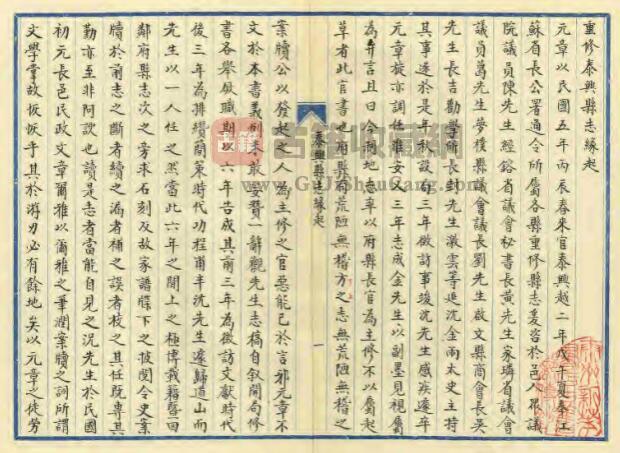 重修泰興縣志緣起
元章以民國五年丙辰春來官泰興越二年戊午夏奉江
蘇省長公署通令所屬各縣重修縣志爰咨於邑人眾議
院議員陳先生經鎔省議會秘書長黃先生家璘省議會
議員葛先生夢樸縣議會議長劉先生啟文縣商會長吳
先生長吉勸學所長封先生激雲等延沈金兩太史主持
其事遂於是年秋設局三年徵訪事竣沈先生感疾遽卒
元章旋亦調任淮安又三年志成金先生以副墨見視屬
為弁言且曰今兩地志率以府縣長官為主修不以屬起
草者此官書也府縣有荒陋無稽方之志無荒陋無稽之
泰興縣志緣起
一
案牘公以發起之人為主修之官惡能已於言邪元章不
文於本書義例未敢學贊一辭觀先生志稿自敘開局修
書各舉厥職期以六年告成其前三年為徵訪文獻時代
後三年為排纘簡策時代功程甫半沈先生遽歸道山而
先生以一人任之然當此六年之間上之極博載籍暨回
鄰府縣志次之旁求石刻及故家譜牒下之披閱令史案
牘於前志之斷者續之漏者補之誤者校之其任既專其
勤亦至非阿諛也讀是志者當能自見之況先生於民國
初元長邑民政文章爾雅以爾雅之筆潤案牘之詞所謂
文學掌故恢恢乎其於游刃必有餘地矣以元章之徒勞
古籍收藏網
www.GuJiShouCang.com